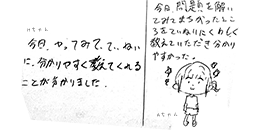 今日、やってみて、ていねい
に、分かりやすく教えてくれる
ことが分かりました。
今日、問題を解い
てみてまちがったとこ
ろをていねいにくわしく
教えていただき分かり
やすかった。